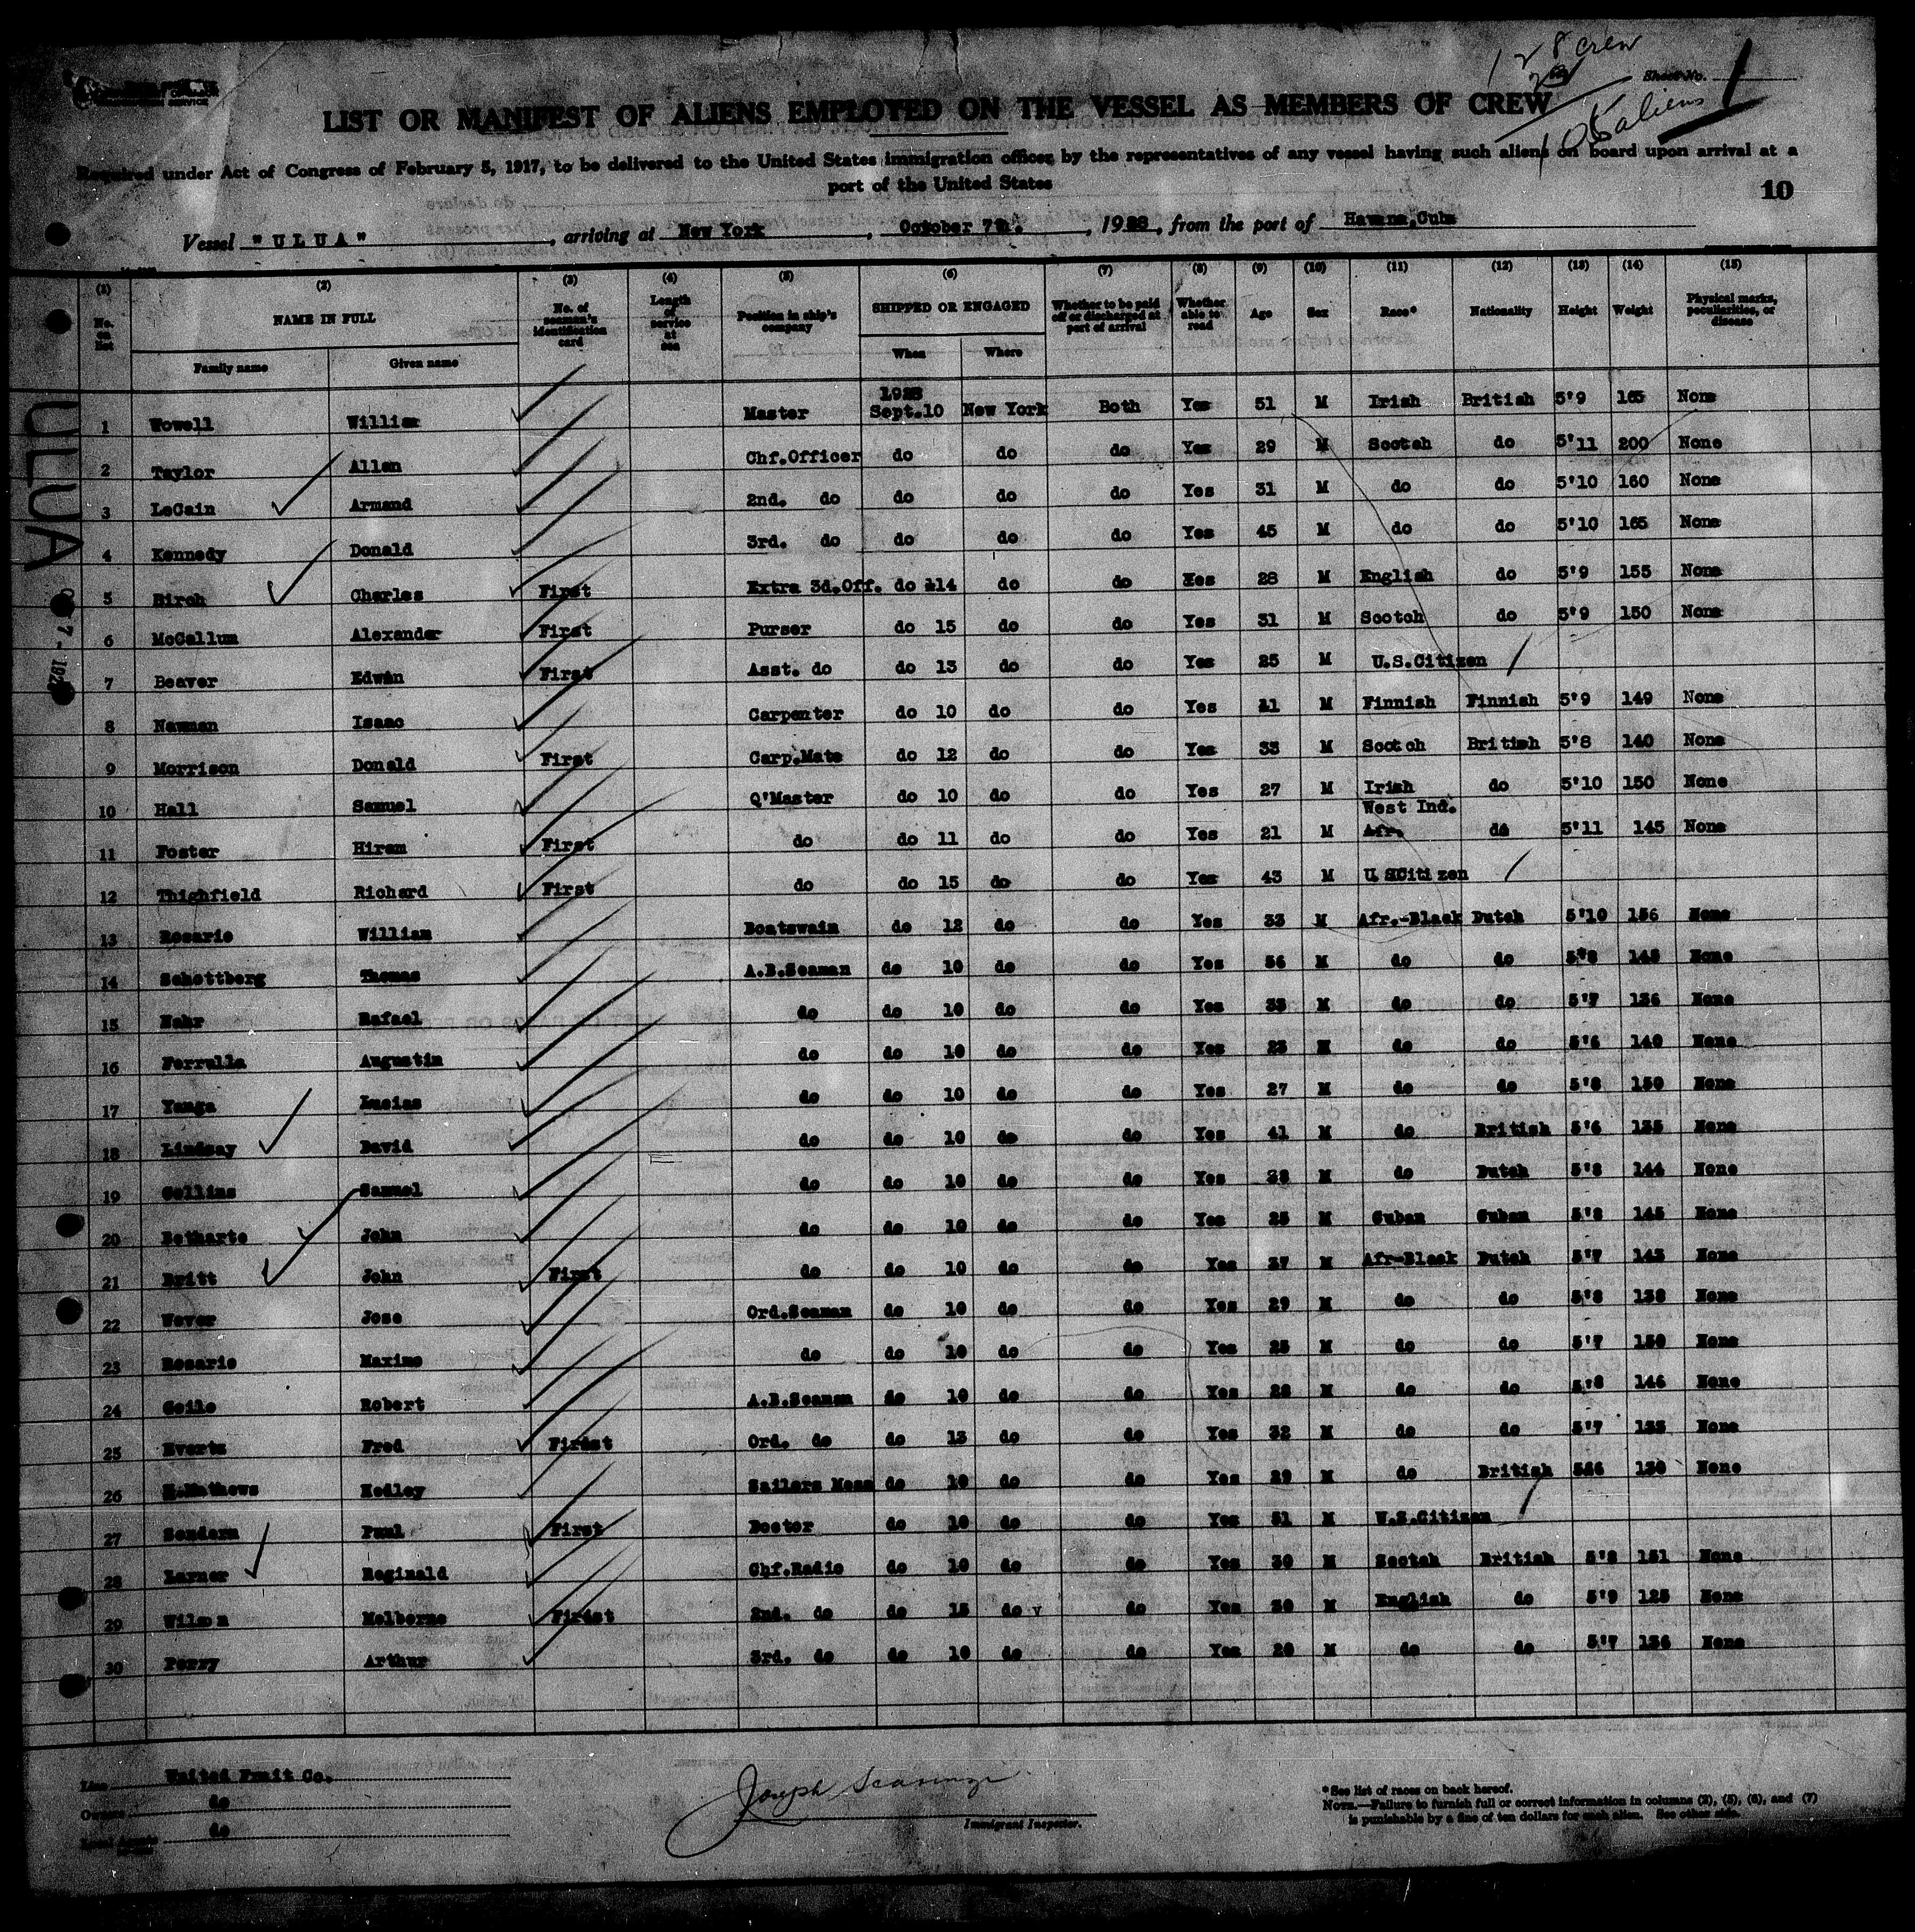 1 2 8 crew
Sheet No. 1
aliens
LIST OR MANIFEST OF ALIENS EMPLOYED ON THE VESSEL AS MEMBERS OF CREW
Required under Act of Congress of February 5, 1917, to be delivered to the United States immigration officer by the representatives of any vessel having such aliens on board upon arrival at a
port of the United States
10
Vessel "ULUA", arriving at New York, October 7th., 1928, from the port of Havana, Cuba
(1) (2) (3) (4) (5) (6) (7) (8) (9) (10) (11) (12) (13) (14) (15)
No. on list NAME IN FULL No. of seaman's identification card Length of service at sea Position in ship's company SHIPPED OR ENGAGED Whether to be paid off or discharged at port of arrival Whether able to read Age Sex Race* Nationality Height Weight Physical marks, peculiarities, or disease
Family name Given name When Where
1928
1 Wowell William Master Sept.10 New York Both Yes 51 M Irish British 5'9 165 None
2 Taylor Allen Chf.Officer do do do Yes 29 M Scotch do 5'11 200 None
3 LeCain Armand 2nd. do do do do Yes 31 M do do 5'10 160 None
4 Kennedy Donald 3rd. do do do do Yes 45 M do do 5'10 165 None
5 Birch Charles First Extra 3d.Off. do 14 do do Yes 28 M English do 5'9 155 None
6 McCallum Alexander First Purser do 15 do do Yes 31 M Scotch do 5'9 150 None
7 Beaver Edwin First Asst. do do 13 do do Yes 25 M U.S.Citizen
8 Newman Isaac Carpenter do 10 do do Yes M Finnish Finnish 5'9 149 None
9 Morrison Donald First Carp.Mate do 12 do do Yes 33 M Scotch British 5'8 140 None
10 Hall Samuel Q'Master do 10 do do Yes 27 M Irish do 5'10 150 None
West Ind.
11 Foster Hiram First do do 11 do do Yes 21 M Afr. do 5'11 145 None
12 Thighfield Richard First do do 15 do do Yes 43 M U.SCitizen
13 Rosario William Boatswain do 12 do do Yes 33 M Afr.-Black Dutch 5'10 156 None
14 Schottberg Thomas A.B.Seaman do 10 do do Yes 56 M do do 5'8 145 None
15 Nahr Rafael do do 10 do do Yes 35 M do do 5'7 136 None
16 Ferrulla Augustin do do 10 do do Yes 23 M do do 5'6 140 None
17 Yanga Lucias do do 10 do do Yes 27 M do do 5'8 150 None
18 Lindsay David do do 10 do do Yes 41 M do British 5'6 135 None
19 Collins Samuel do do 10 do do Yes 38 M do Dutch 5'8 144 None
20 Betharte John do do 10 do do Yes 25 M Cuban Cuban 5'8 145 None
21 Britt John First do do 10 do do Yes 37 M Afr-Black Dutch 5'7 143 None
22 Wever Jose Ord.Seaman do 10 do do Yes 29 M do do 5'8 138 None
23 Rosario Maximo do do 10 do do Yes 25 M do do 5'7 150 None
24 Coilo Robert A.B.Seaman do 10 do do Yes 28 M do do 5'8 146 None
25 Evertz Fred First Ord. do do 13 do do Yes 32 M do do 5'7 135 None
26 Mathews Hedley Sailors Mess do 10 do do Yes 29 M do British 130 None
27 Sendarn Paul First Doctor do 10 do do Yes 31 M U.S.Citizen
28 Larner Reginald Chf.Radio do 10 do do Yes 30 M Scotch British 5'8 151 None
29 Wilson Melborne First 2nd. do do 15 do do Yes 20 M English do 5'9 125 None
30 Perry Arthur 3rd. do do 10 do do Yes 20 M do do 5'7 136 None
ULUA
7 - 192
Line United Fruit Co.
Owners do
Local Agents do
Joseph
Immigrant Inspector.
*See list of races on back hereof.
NOTE.—Failure to furnish full or correct information in columns (2), (5), (6), and (7)
is punishable by a fine of ten dollars for each alien. See other side.